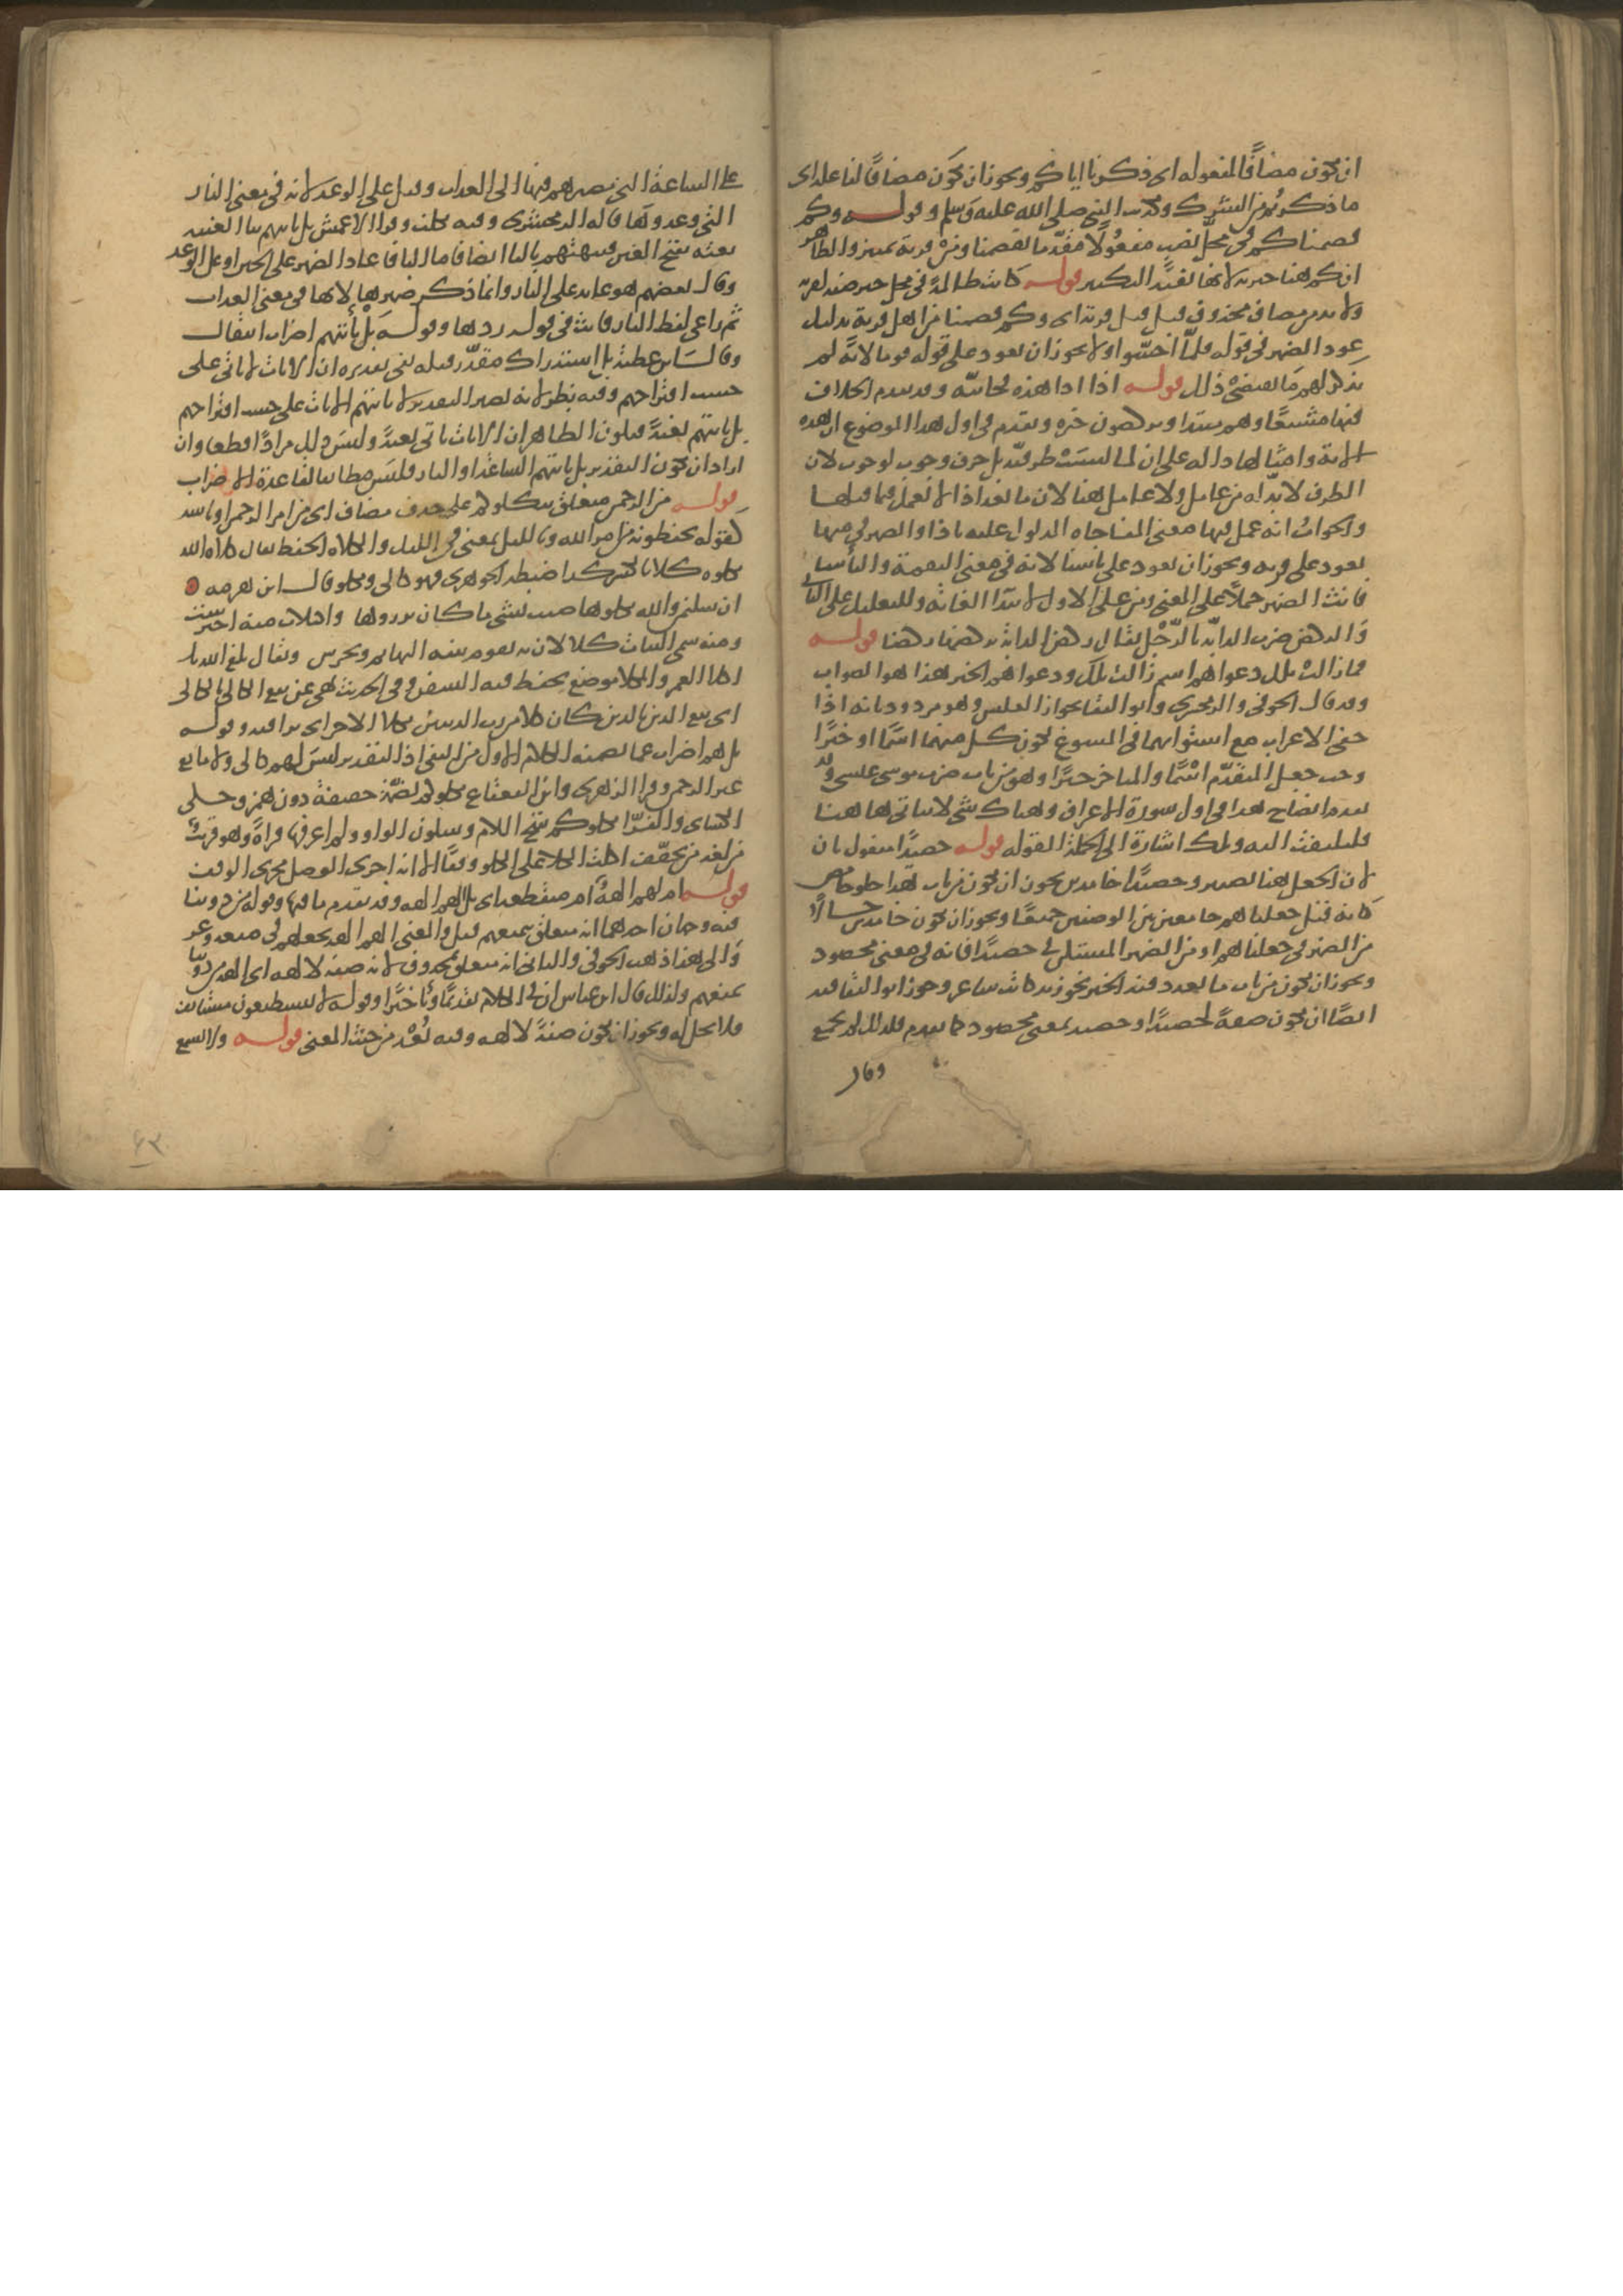 ان يكون مضافا لمفعوله اى ذكرنا اياكم ويجوز ان يكون مضافا لفاعله اى
ما ذكرتم من الشرك وتكذيب النبى صلى الله عليه وسلم وقوله وكم
قصمنا كم فى محل نصب مفعولا مقدما بقصمنا ومن قرية تمييز والظاهر
ان كم هنا خبرية لانها تفيد التكثير قوله كانت ظالمة فى محل جر صفة لقرية
ولا بد من مضاف محذوف قبل قرية اى وكم قصمنا من اهل قرية بدليل
عود الضمير فى قوله فلما احسوا ولا يجوز ان يعود على قوله قوما لانه لم
يذكر لهم ما يقتضى ذلك قوله اذا اذا هذه فجائية وقد تقدم الخلاف
فيها مشبعا وهم مبتدا ويركضون خبره وتقدم فى اول هذا الموضوع ان هذه
الاية وامثالها دالة على ان لما ليست ظرفية بل حرف وجوب لوجوب لان
الظرف لا بد له من عامل ولا عامل هنا لان ما بعد اذا لا يعمل فيما قبلها
والجواب انه عمل فيها معنى المفاجاه المدلول عليه باذا والضمير فى منها
يعود على قرية ويجوز ان يعود على باسنا لانه فى معنى النقمة والباسا
فانث الضمير حملا على المعنى ومن على الاول لابتدا الغاية وللتعليل على الثانى
والركض ضرب الدابة بالرجل يقال ركض الدابة يركضها ركضا قوله
فما زالت تلك دعواهم اسم زالت تلك ودعواهم الخبر هذا هو الصواب
وقد قال الحوفى والزمخشرى وابو البقا بجواز العكس وهو مردود بانه اذا
خفى الاعراب مع استوائهما فى المسوغ لكون كل منهما اسما او خبرا
وجب جعل المتقدم اسما والمتاخر خبرا وهو من باب ضرب موسى عيسى وقد
تقدم ايضاح هذا فى اول سورة الاعراف وهناك شى لا يتاتى هاهنا
فليلتفت اليه وتلك اشارة الى الجملة المقولة قوله حصيدا مفعول ثان
لان الجعل هنا تصيير وحصيدا خامدين يجوز ان يكون من باب هذا حلو حامض
كانه قيل جعلناهم جامعين بين الوصفين جميعا ويجوز ان يكون خامدين حالا
من الضمير فى جعلناهم او من الضمير المستكن فى حصيدا فانه فى معنى محصود
ويجوز ان يكون من باب ما تعدد فيه الخبر نحو زيد كاتب شاعر وجوز ابو البقا فيه
ايضا ان يكون صفة لحصيدا وحصيد بمعنى محصود كما تقدم فلذلك لم يجمع
وقال
على الساعة التى تصيرهم فيها الى العذاب وقيل على الوعد لانه فى معنى النار
التى وعدوها قاله الزمخشرى وفيه تكلف وقرا الاعمش بل ياتيهم بيا الغيبة
بغتة بفتح الغين فيبهتهم باليا ايضا فاما اليا فاعاد الضمير على الحين او على الوعد
وقال بعضهم هو عايد على النار وانما ذكر ضميرها لانها فى معنى العذاب
ثم راعى لفظ النار فانث فى قوله ردها وقوله بل تاتيهم اضراب انتقال
وقال ابن عطية بل استدراك مقدر قبله نفى تقديره ان الايات لا تاتى على
حسب اقتراحهم وفيه نظر لانه يصير التقدير لا تاتيهم الايات على حسب اقتراحهم
بل تاتيهم بغتة فيكون الظاهر ان الايات تاتى بغتة وليس ذلك مرادا قطعا وان
اراد ان يكون التقدير بل تاتيهم الساعة او النار فليس مطابقا لقاعدة الاضراب
قوله من الرحمن متعلق بيكلوكم على حذف مضاف اى من امر الرحمن او باسه
كقوله يحفظونه من امر الله وبالليل بمعنى فى الليل والكلاه الحفظ يقال كلاه الله
يكلوه كلاة بالكسر كذا ضبطه الجوهرى فهو كالى ومكلو وقال ابن هرمة
ان سليمى والله يكلوها ضنت بشى ما كان يرزوها واكتلات منه احترست
ومنه سمى النبات كلا لان به تقوم بنية البهايم وتحرس ويقال بلغ الله بك
اكلا العمر والمكلا موضع يحفظ فيه السفن وفى الحديث نهى عن بيع الكالى بالكالى
اى بيع الدين بالدين كان كلا من رب الدينين يكلا الاخر اى يراقبه وقوله
بل هم اضراب عما تضمنه الكلام الاول من النفى اذ التقدير ليس لهم كالى ولا مانع
غير الرحمن وقرا الزهرى وابن القعقاع يكلوكم بضمة خفيفة دون همز وحكى
الكساى والفرا يكلوكم بفتح اللام وسكون الواو ولم اعرفها قراة وهو قريب
من لغة من يخفف اكلت الكلا على الكلو وقفا الا انه اجرى الوصل مجرى الوقف
قوله ام لهم الهة ام منقطعة اى بل الهم الهة وقد تقدم ما فيها وقوله من دوننا
فيه وجهان احدهما انه متعلق بتمنعهم قيل والمعنى الهم الهة تجعلهم فى منعة وعز
والى هذا ذهب الحوفى والثانى انه متعلق بمحذوف لانه صفة لالهة اى الهة من دوننا
تمنعهم ولذلك قال ابن عباس ان فى الكلام تقديما وتاخيرا وقوله لا يستطيعون مستانف
فلا محل له ويجوز ان يكون صفة لالهة وفيه بعد من حيث المعنى قوله ولا يسمع
٦٣